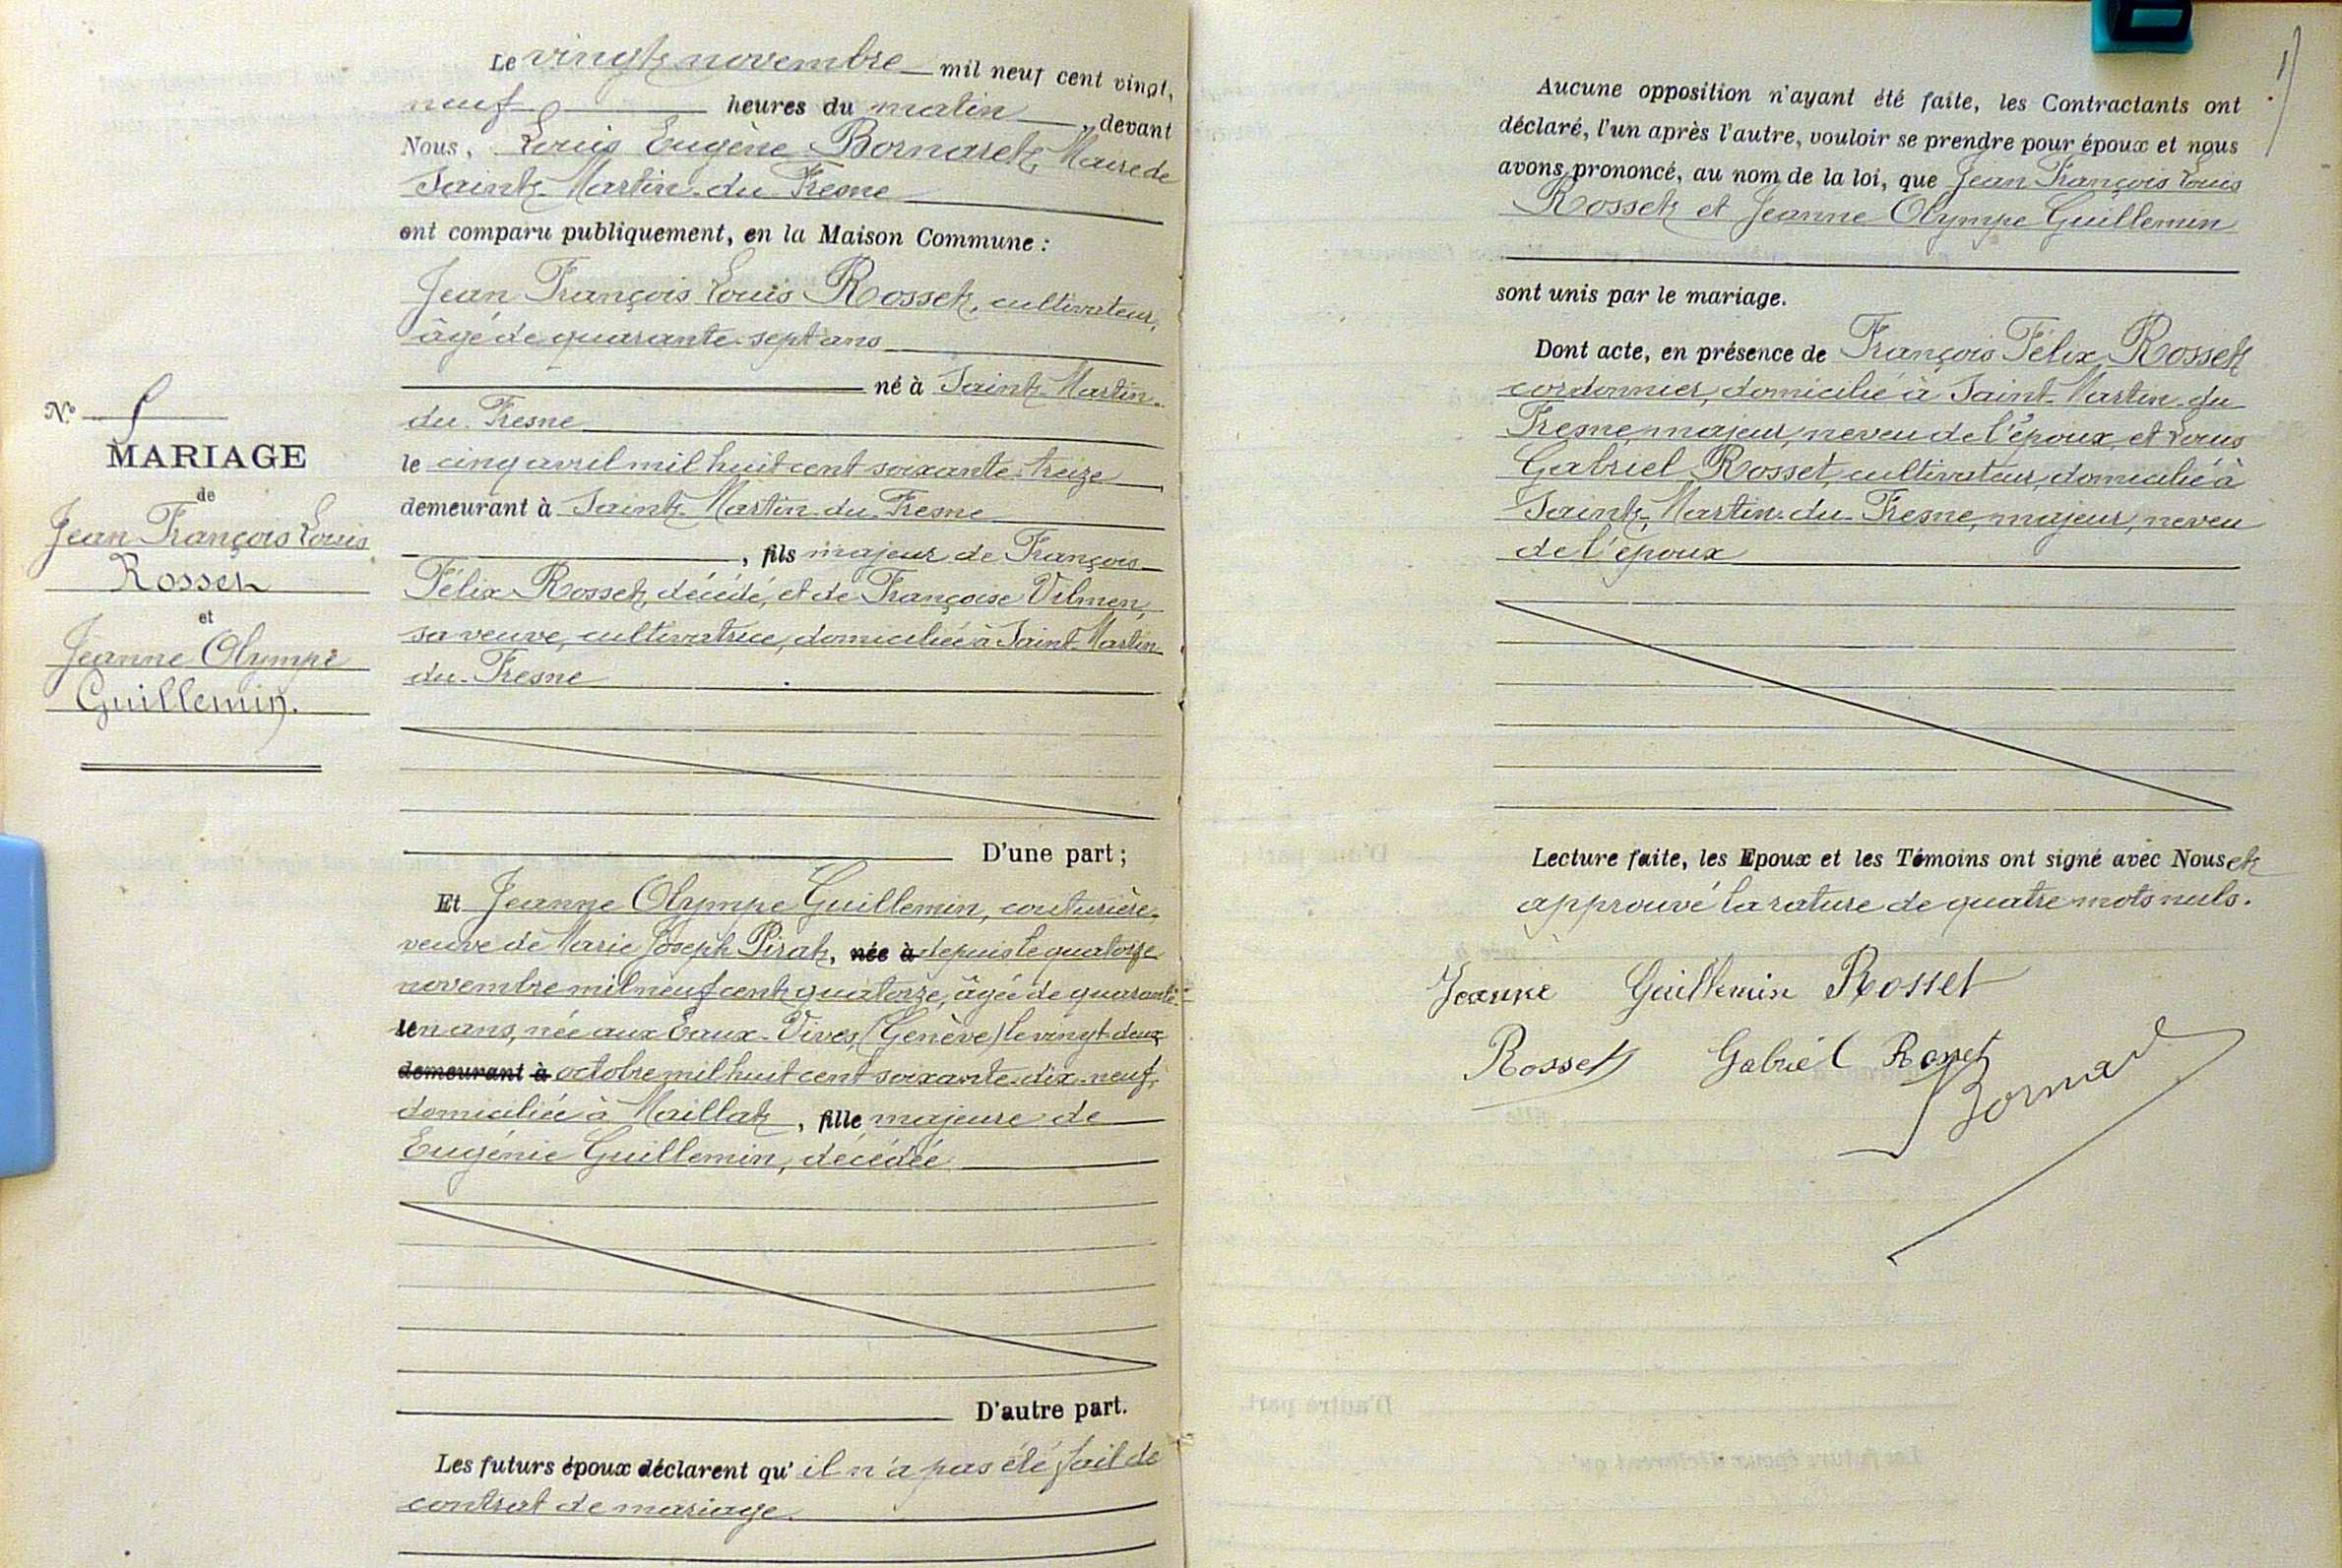 Le vingt novembre mil neuf cent vingt,
neuf heures du matin, devant
Nous, Louis Eugène Bornaret, Maire de
Saint-Martin-du-Fresne
ont comparu publiquement, en la Maison Commune :
Jean François Louis Rosset, cultivateur,
âgé de quarante-sept ans
né à Saint-Martin-
du-Fresne
le cinq avril mil huit cent soixante-treize
demeurant à Saint-Martin-du-Fresne
, fils majeur de François
Félix Rosset, décédé, et de Françoise
sa veuve, cultivatrice, domiciliée à Saint-Martin
du-Fresne
D'une part ;
Et Jeanne Olympe Guillemin, couturière,
veuve de Marie Joseph Pirat, née à depuis le quatorze
novembre mil neuf cent quatorze, âgée de quarante-
un ans, née aux Eaux-Vives, (Genève) le vingt-deux
demeurant à octobre mil huit cent soixante-dix-neuf,
domiciliée à Maillat, fille majeure de
Eugénie Guillemin, décédée
D'autre part.
Les futurs époux déclarent qu'il n'a pas été fait de
contrat de mariage.
N°
MARIAGE
de
Jean François Louis
Rosset
et
Jeanne Olympe
Guillemin.
Aucune opposition n'ayant été faite, les Contractants ont
déclaré, l'un après l'autre, vouloir se prendre pour époux et nous
avons prononcé, au nom de la loi, que Jean François Louis
Rosset et Jeanne Olympe Guillemin
sont unis par le mariage.
Dont acte, en présence de François Félix Rosset
cordonnier, domicilié à Saint-Martin-du
Fresne, majeur, neveu de l'époux, et Louis
Gabriel Rosset, cultivateur, domicilié à
Saint-Martin-du-Fresne, majeur, neveu
de l'époux
Lecture faite, les Epoux et les Témoins ont signé avec Nous et
approuvé la rature de quatre mots nuls.
Jeanne Guillemin Rosset
Rosset Gabriel Rosset